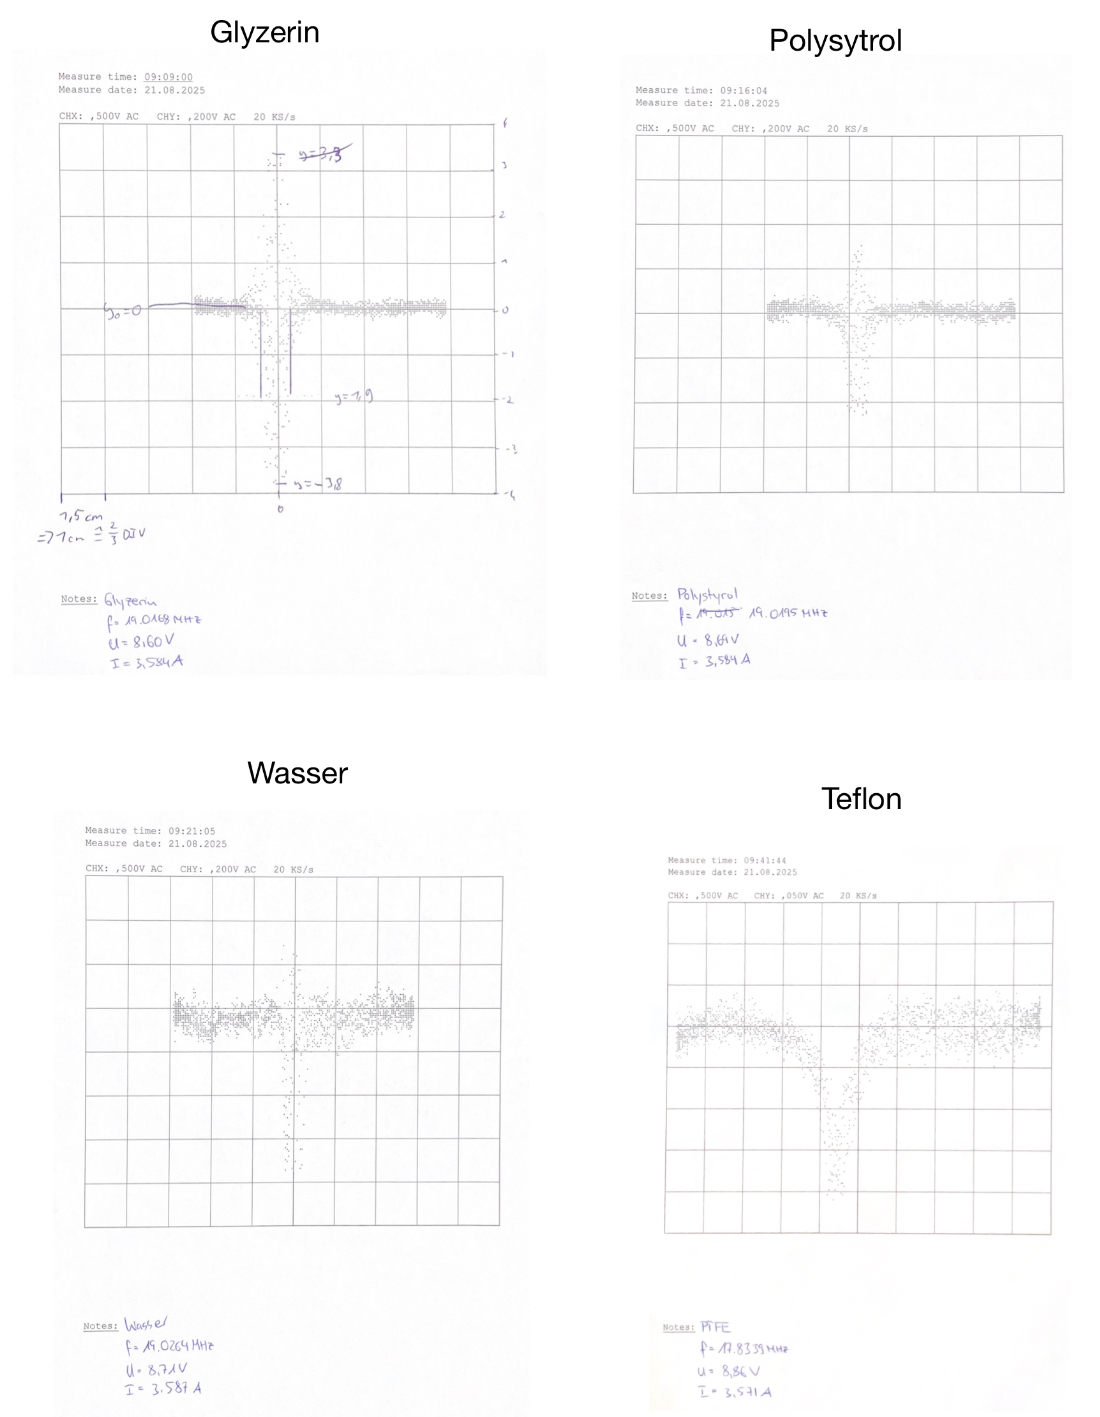 Glyzerin
Measure time: 09:09:00
Measure date: 21.08.2025
CHX: ,500V AC CHY: ,200V AC 20 KS/s
y=3,3
3
2
1
y₀=0
0
-1
y=1,9
-2
-3
y=-3,8
-4
0
1,5 cm
=> 1cm ≙ 2/3 DIV
Notes: Glyzerin
f= 19.0168 MHz
U= 8,60 V
I= 3,584 A
Polysytrol
Measure time: 09:16:04
Measure date: 21.08.2025
CHX: ,500V AC CHY: ,200V AC 20 KS/s
Notes: Polystyrol
f= 19.015 19.0195 MHz
U= 8,64V
I= 3,584 A
Wasser
Measure time: 09:21:05
Measure date: 21.08.2025
CHX: ,500V AC CHY: ,200V AC 20 KS/s
Notes: Wasser
f= 19.0264 MHz
U= 8,71V
I= 3.587 A
Teflon
Measure time: 09:41:44
Measure date: 21.08.2025
CHX: ,500V AC CHY: ,050V AC 20 KS/s
Notes: PTFE
f= 17.8339 MHz
U= 8,86 V
I= 3,571 A